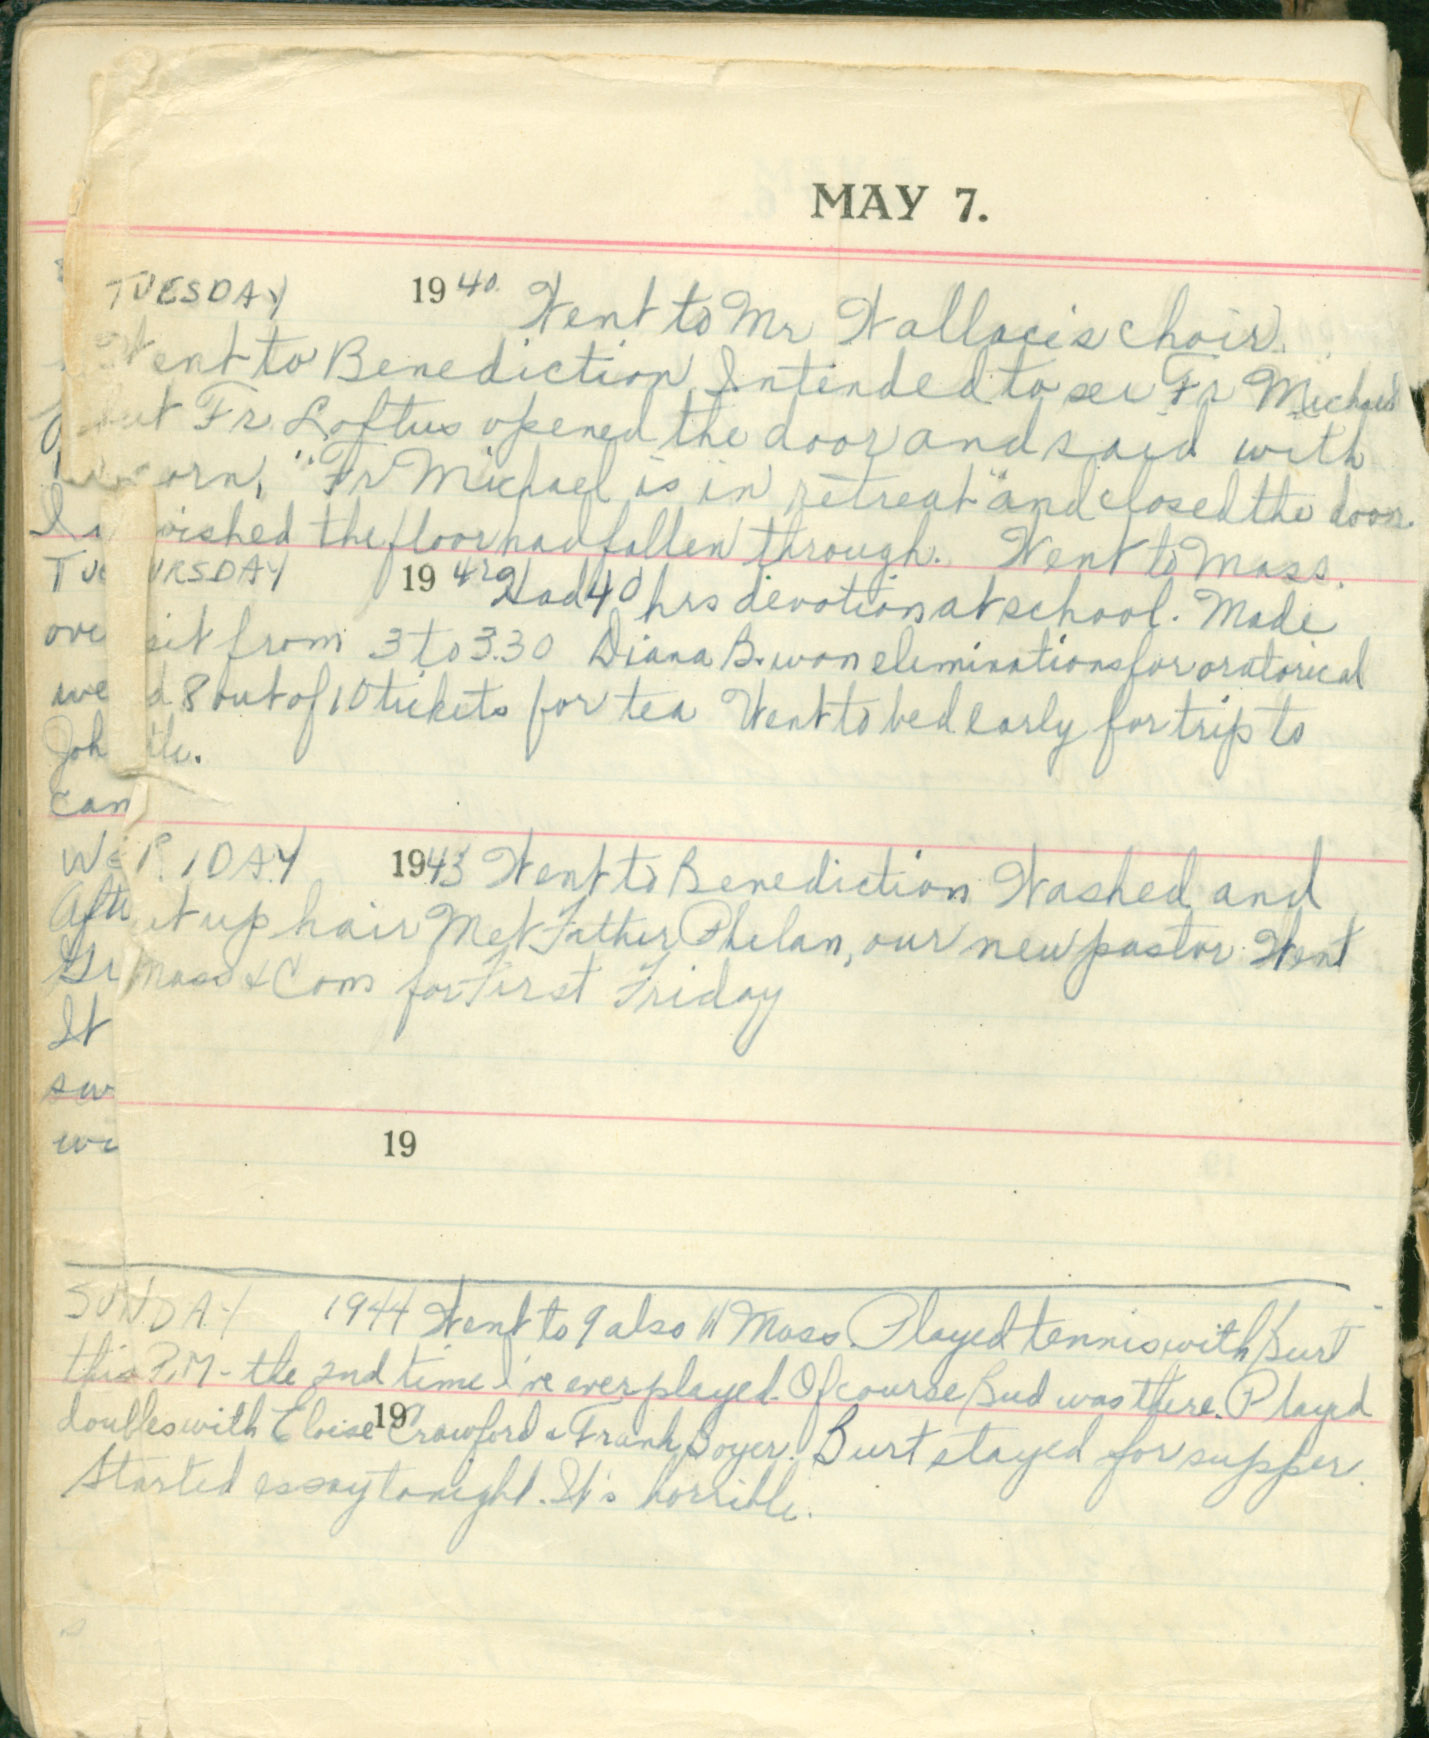 MAY 7.
TUESDAY 1940 Went to Mr Wallace's choir.
Went to Benediction Intended to see Fr Michael
but Fr Loftus opened the door and said with
orn, "Fr Michael is in retreat" and closed the door.
I wished the floor had fallen through. Went to Mass.
Tue URSDAY 1942 Had 40 hrs devotion at school. Made
ove sit from 3 to 3.30 Diana B. won eliminations for oratorical
we d 8 out of 10 tickets for tea Went to bed early for trip to
Joh tle.
can
We RIDAY 1943 Went to Benediction Washed and
Afte et up hair Met Father Phelan, our new pastor. Went
Gr Mass & Com for First Friday
It
sw
we 19
SUNDAY 1944 Went to 9 also 11 Mass. Played tennis with Burt
this P.M - the 2nd time I've ever played. Of course Bud was there. Played
doubles with Eloise Crawford & Frank Boyer. Burt stayed for supper.
19
Started essay tonight. It's horrible.